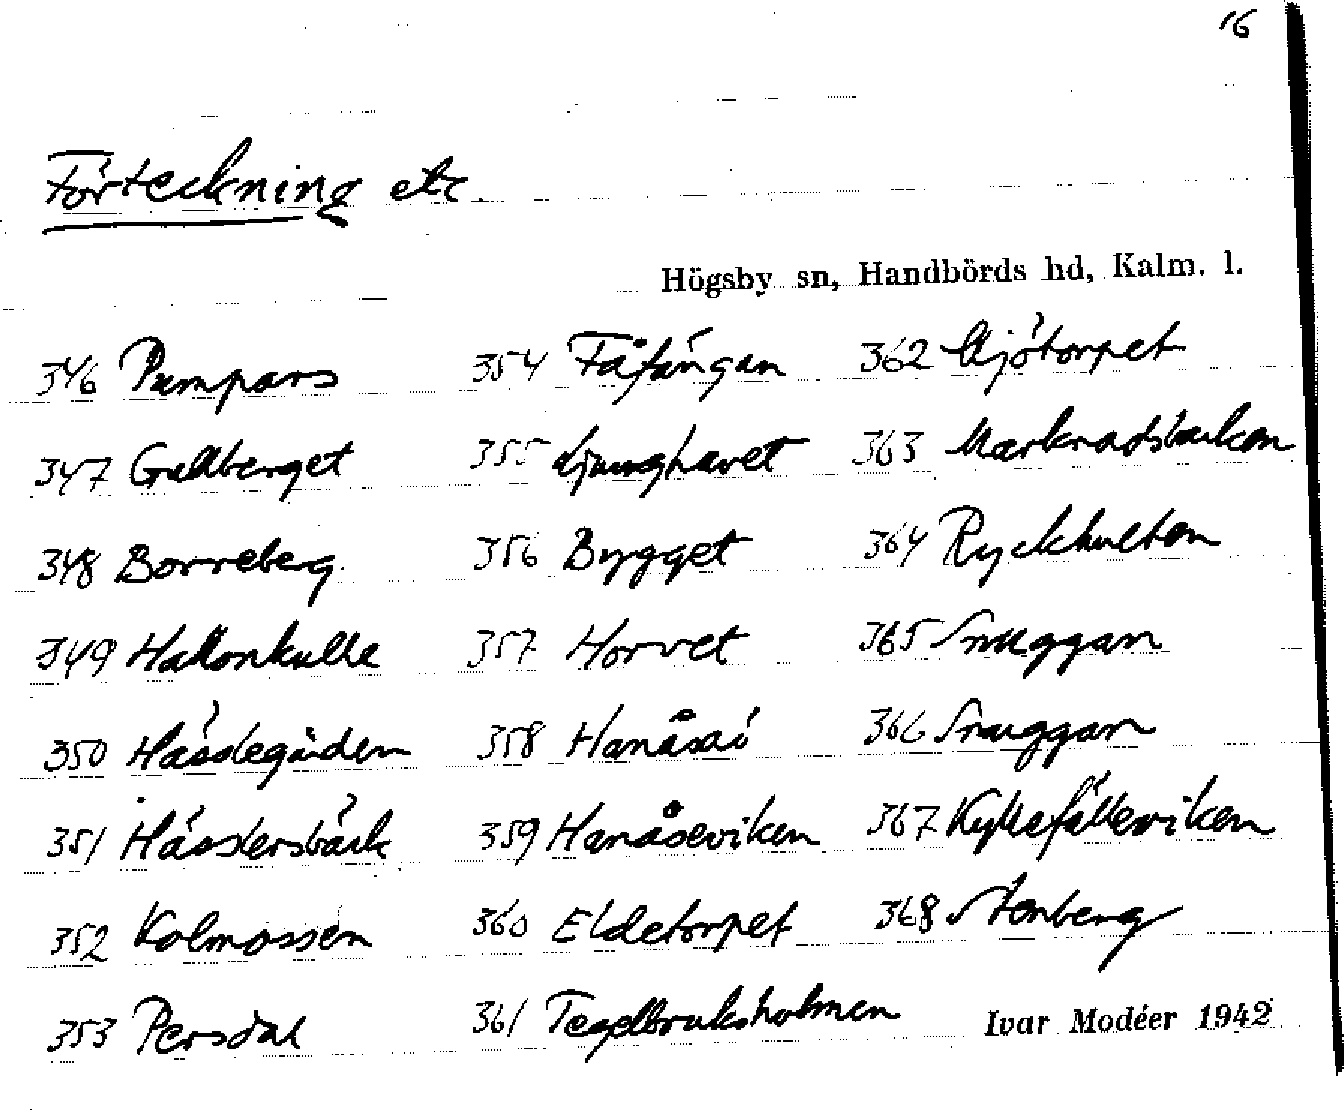 16
Förteckning etc.
Högsby sn, Handbörds hd, Kalm. l.
346 Pumpars 354 Fåfängan 362 Sjötorpet
347 Gullberget 355 Ljunghavet 363 Marknadsbacken
348 Borreberg 356 Bygget 364 Ryckhulten
349 Hallonkulla 357 Horvet 365 Snuggan
350 358 Hanåsaö 366 Snuggan
351 359 Hanåseviken 367 Kyllefälleviken
352 Kolmossen 360 Eldetorpet 368 Stenberg
353 Persdal 361 Tegelbruksholmen Ivar Modéer 1942